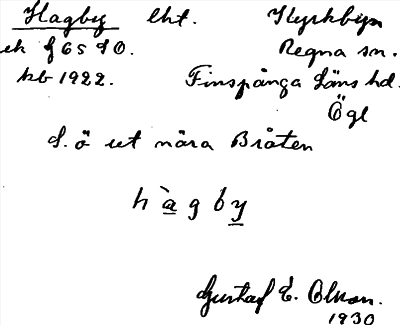 Hagby lht. Kyrkbyn
ek f 65 90. Regna sn.
kb 1922. Finspånga läns hd.
Ögl
S. ö ut nära Bråten
hàgby
Gustaf E. Olson.
1930